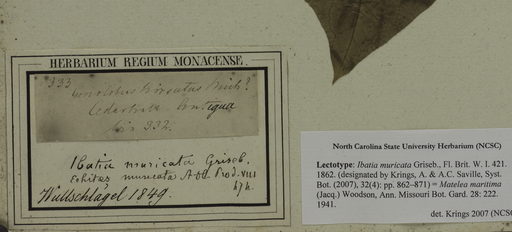 HERBARIUM REGIUM MONACENSE.
333
Antigua
332.
Ibatia muricata Griseb.
Echites muricata
Wullschlägel 1849.
North Carolina State University Herbarium (NCSC)
Lectotype: Ibatia muricata Griseb., Fl. Brit. W. I. 421.
1862. (designated by Krings, A. & A.C. Saville, Syst.
Bot. (2007), 32(4): pp. 862–871) = Matelea maritima
(Jacq.) Woodson, Ann. Missouri Bot. Gard. 28: 222.
1941.
det. Krings 2007 (NCSC